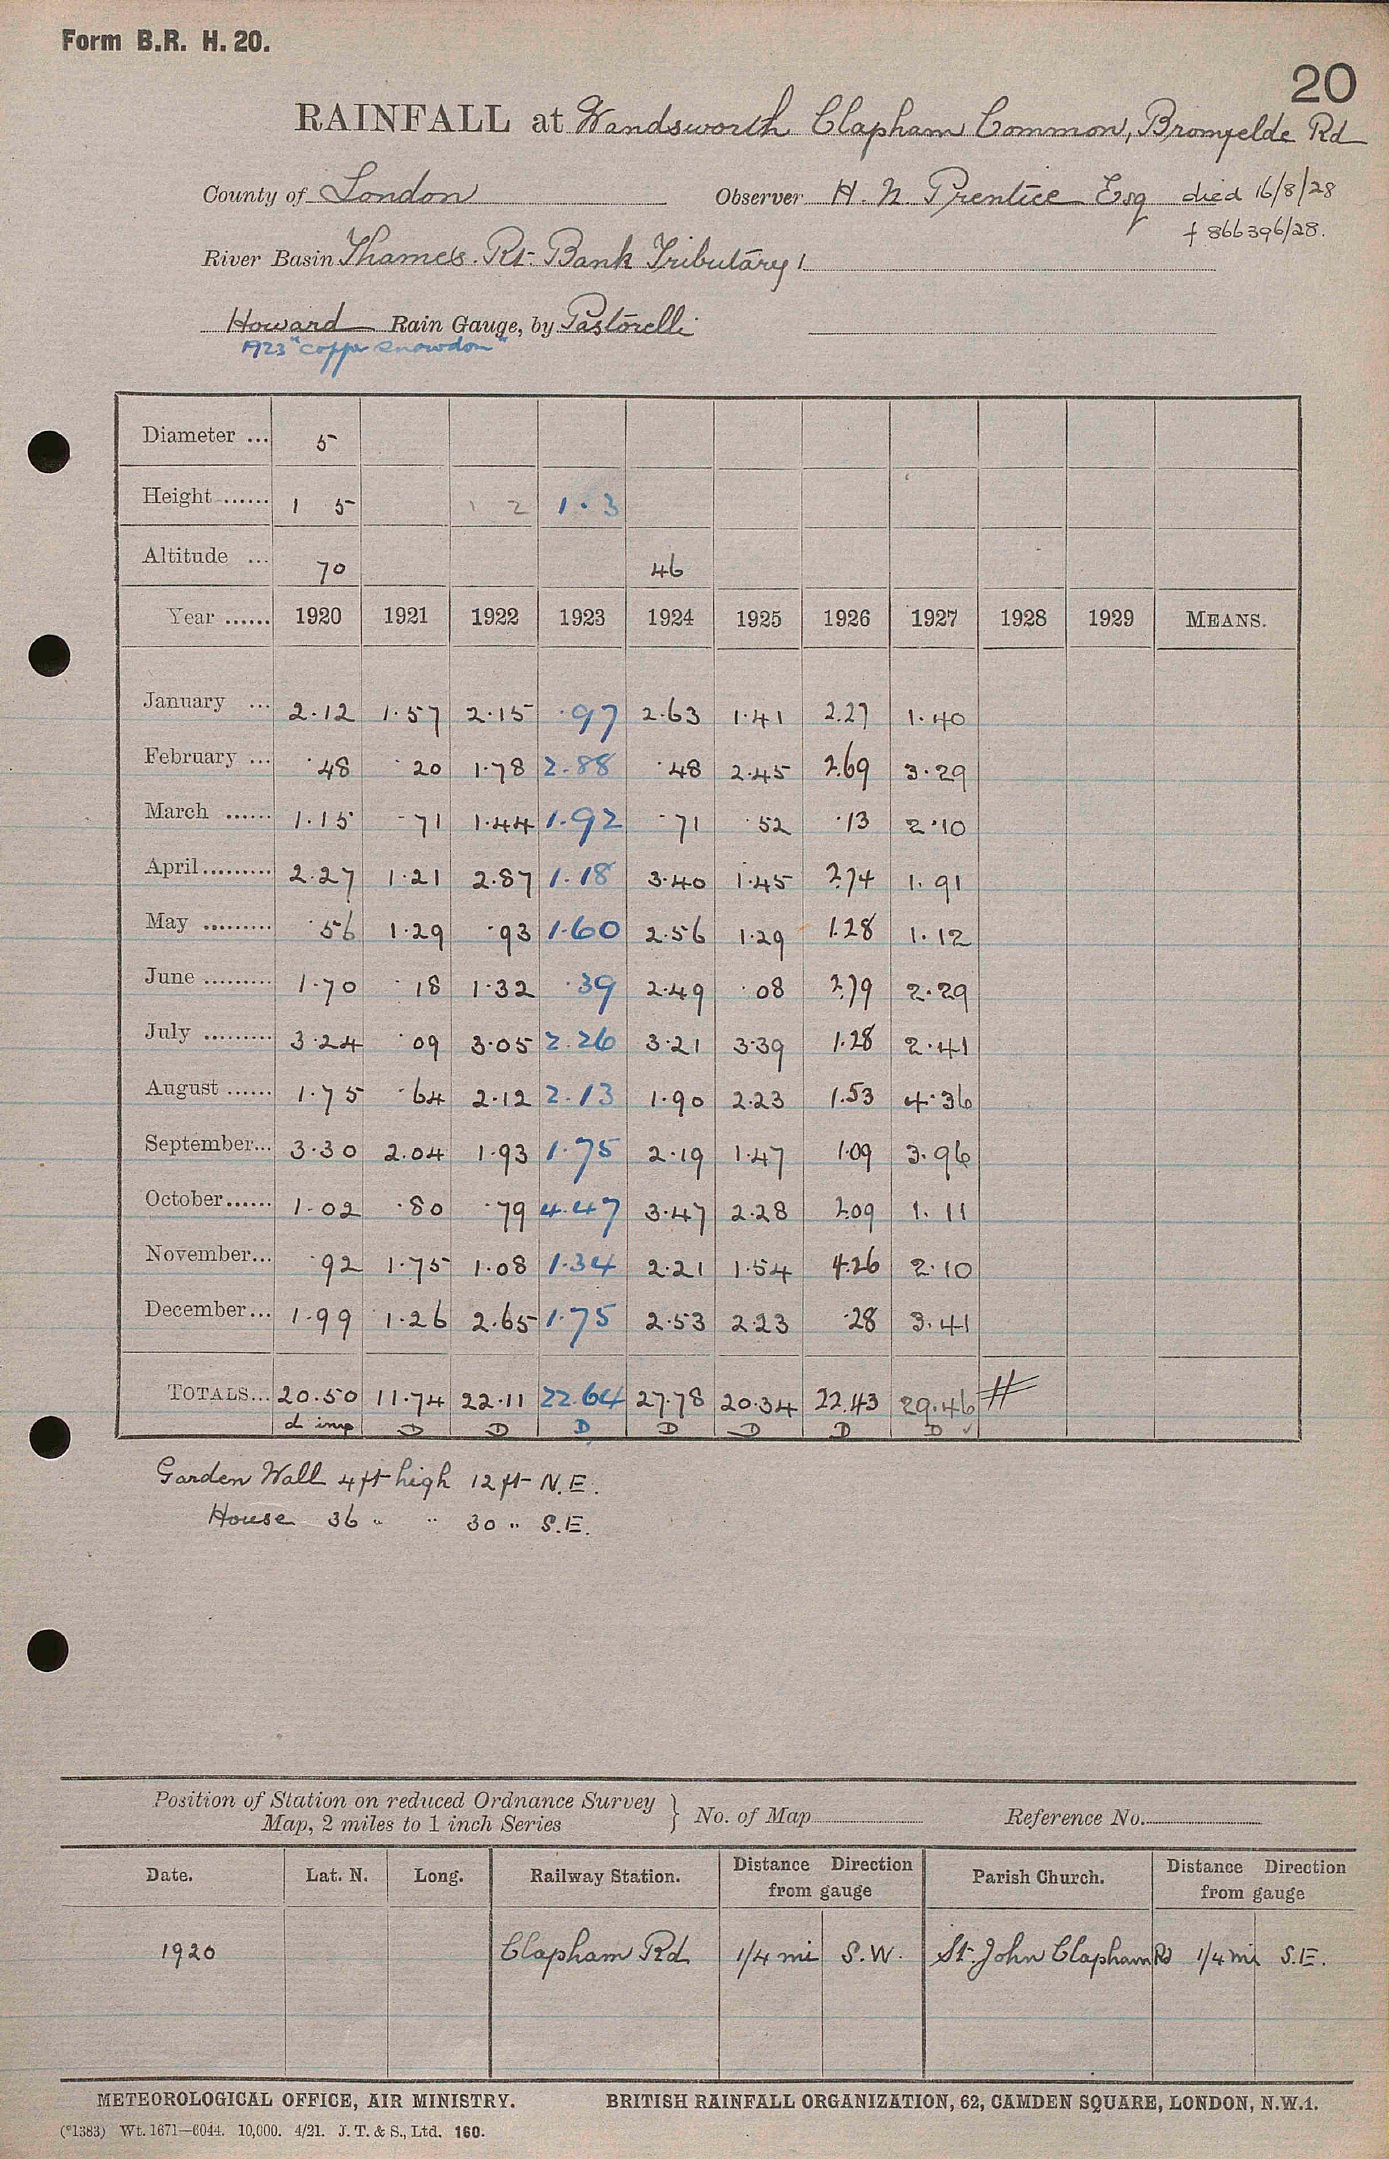 Form B.R. H. 20.
20
RAINFALL at Wandsworth Clapham Common, Bromfelde Rd
County of London Observer H. N. Prentice Esq died 16/8/28
f 866396/28.
River Basin Thames. Rt. Bank Tributary 1
Howard Rain Gauge, by Pastorelli
1923 "Copper Snowdon"
Diameter ... 5
Height ...... 1 5 1 2 1.3
Altitude ... 70 46
Year ...... 1920 1921 1922 1923 1924 1925 1926 1927 1928 1929 MEANS.
January ... 2.12 1.57 2.15 .97 2.63 1.41 2.27 1.40
February ... .48 .20 1.78 2.88 .48 2.45 2.69 3.29
March ...... 1.15 .71 1.44 1.92 .71 .52 .13 2.10
April ......... 2.27 1.21 2.87 1.18 3.40 1.45 2.74 1.91
May ......... .56 1.29 .93 1.60 2.56 1.29 1.28 1.12
June ......... 1.70 .18 1.32 .39 2.49 .08 2.79 2.29
July ......... 3.24 .09 3.05 2.26 3.21 3.39 1.28 2.41
August ...... 1.75 .64 2.12 2.13 1.90 2.23 1.53 4.36
September... 3.30 2.04 1.93 1.75 2.19 1.47 1.09 3.96
October...... 1.02 .80 .79 4.47 3.47 2.28 2.09 1.11
November... .92 1.75 1.08 1.34 2.21 1.54 4.26 2.10
December... 1.99 1.26 2.65 1.75 2.53 2.23 .28 3.41
TOTALS... 20.50 11.74 22.11 22.64 27.78 20.34 22.43 29.46 #
d imp D D D D D D D ✓
Garden Wall 4 ft high 12 ft N.E.
House 36 " " 30 " S.E.
Position of Station on reduced Ordnance Survey
Map, 2 miles to 1 inch Series } No. of Map Reference No.
Date. Lat. N. Long. Railway Station. Distance Direction from gauge Parish Church. Distance Direction from gauge
1920 Clapham Rd 1/4 mi S.W. St. John Clapham Rd 1/4 mi S.E.
METEOROLOGICAL OFFICE, AIR MINISTRY. BRITISH RAINFALL ORGANIZATION, 62, CAMDEN SQUARE, LONDON, N.W.1.
(*1383) Wt. 1671—6044. 10,000. 4/21. J. T. & S., Ltd. 160.